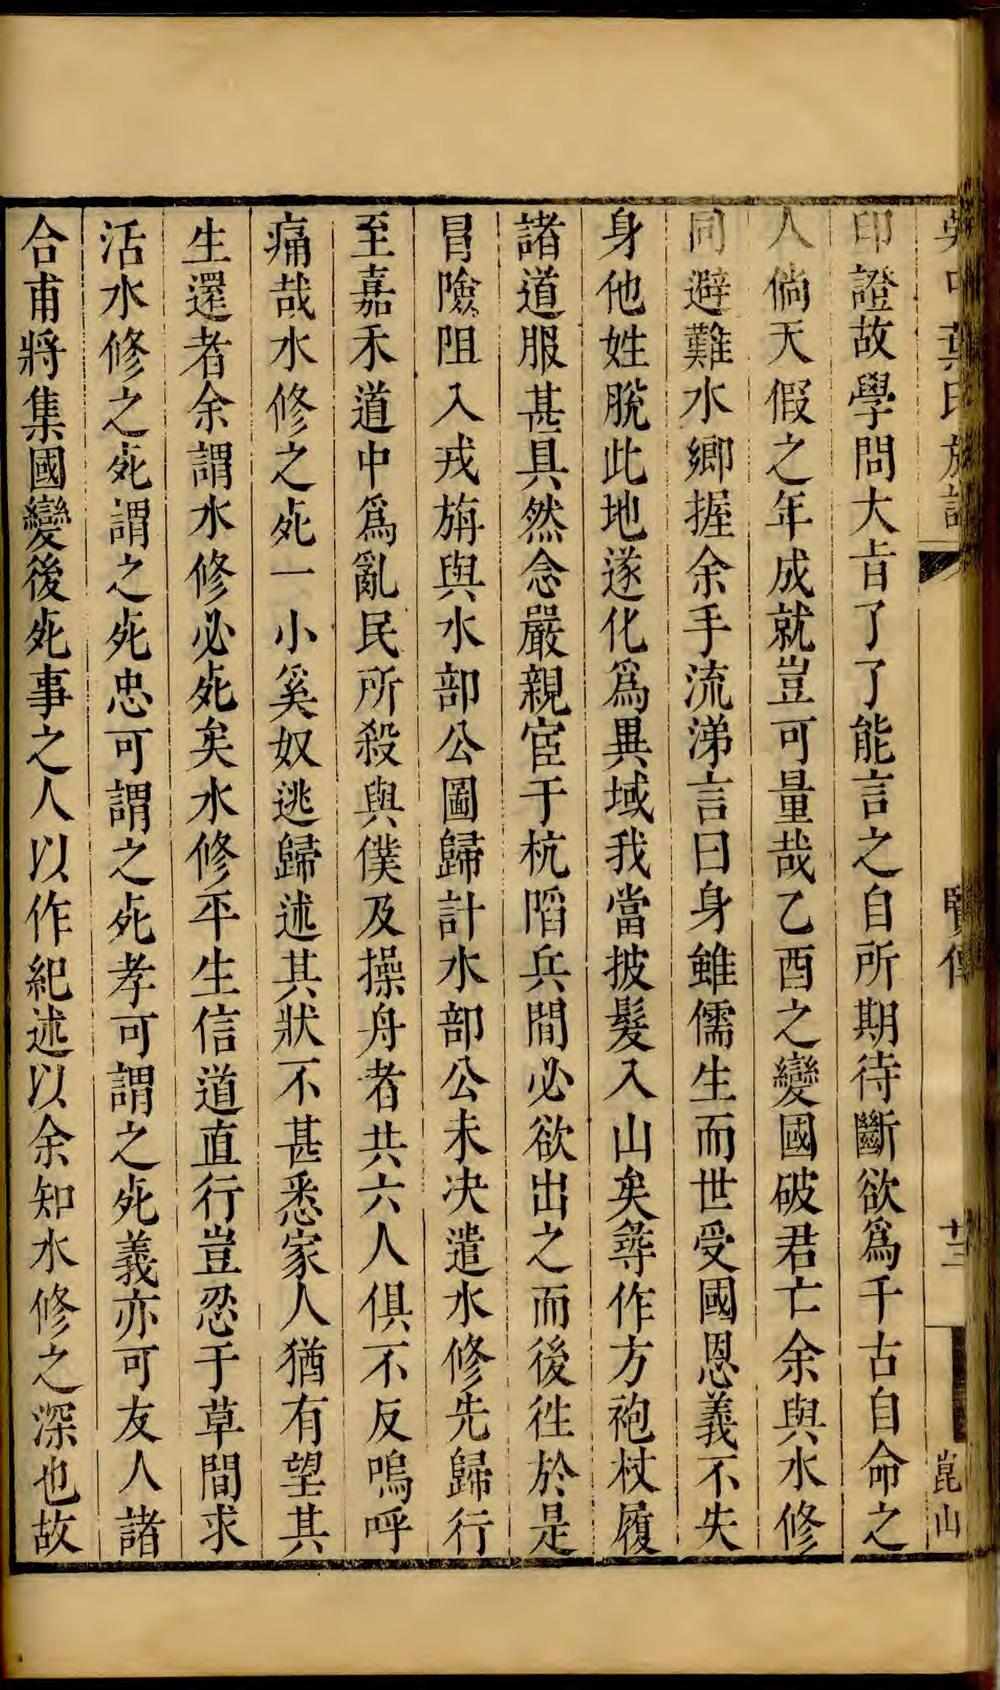 吳中葉氏族譜 賢傳 廿三 崑山
印證故學問大旨了了能言之自所期待斷欲爲千古自命之
人倘天假之年成就豈可量哉乙酉之變國破君亡余與水修
同避難水鄉握余手流涕言曰身雖儒生而世受國恩義不失
身他姓脫此地遂化爲異域我當披髮入山矣尋作方袍杖履
諸道服甚具然念嚴親宦于杭陷兵間必欲出之而後徃於是
冐險阻入戎旃與水部公圖歸計水部公未决遣水修先歸行
至嘉禾道中爲亂民所殺與僕及操舟者共六人俱不反嗚呼
痛哉水修之死一小奚奴逃歸述其狀不甚悉家人猶有望其
生還者余謂水修必死矣水修平生信道直行豈忍于草間求
活水修之死謂之死忠可謂之死孝可謂之死義亦可友人諸
合甫將集國變後死事之人以作紀述以余知水修之深也故